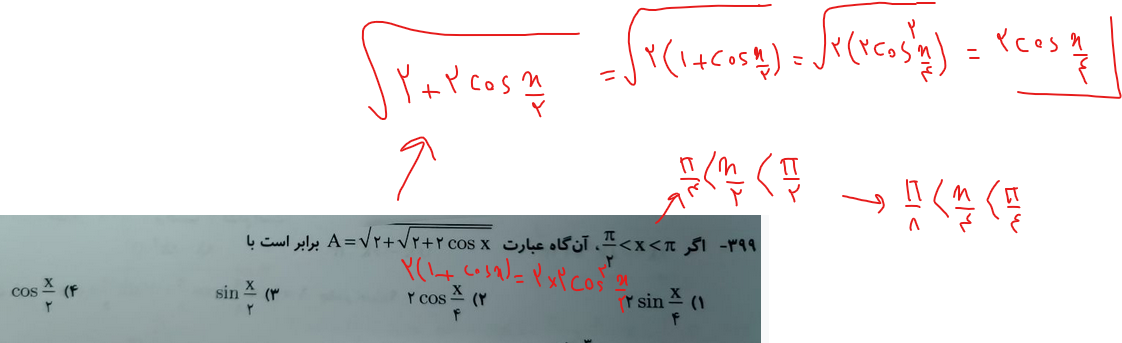 √(۲+۲cos x/۲) = √(۲(۱+cos x/۲)) = √(۲(۲cos²x/۴)) = ۲cos x/۴
π/۴ < x/۲ < π/۲ → π/۸ < x/۴ < π/۴
۳۹۹- اگر π/۲ < x < π، آن‌گاه عبارت A = √(۲+√(۲+۲ cos x)) برابر است با
۲(۱+cosx) = ۲×۲cos² x/۲
۱) ۲ sin x/۴ ۲) ۲ cos x/۴ ۳) sin x/۲ ۴) cos x/۲